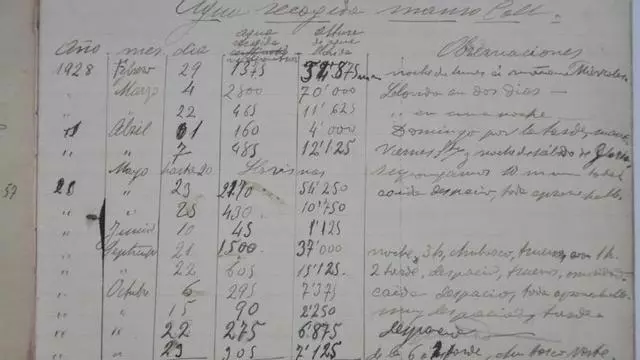 Agua recogida manso Coll.
Año mes dia agua recogida altura de agua Observaciones
1928 Febrero 29 1375 34'875 noche de lunes á mañana Miercoles
" Marzo 4 2800 70'000 en dos dias
" " 22 465 11'625 " en una noche
" Abril 01 160 4'000 Domingo por la tarde,
" " 7 485 12'125 Viernes Sto y noche de sábado de Gloria
Mayo hasta 20 Lloviznas 10 mm total
57 " 23 2170 54'250 caida despacio, toda aprovechable.
" " 25 430 10'750
" Junio 10 45 1'125
" Septiembre 21 1500 37'000 noche, 3h, chubasco, truenos, 1h.
" " 22 605 15'125 2 tarde, despacio, truenos,
" Octubre 6 295 7'375 caida despacio, toda aprovechable.
" " 15 90 2'250 muy despacio, tarde
" " 22 275 6'875 despacio
" " 23 305 7'125 de la 6 a tarde, chubasco, Norte